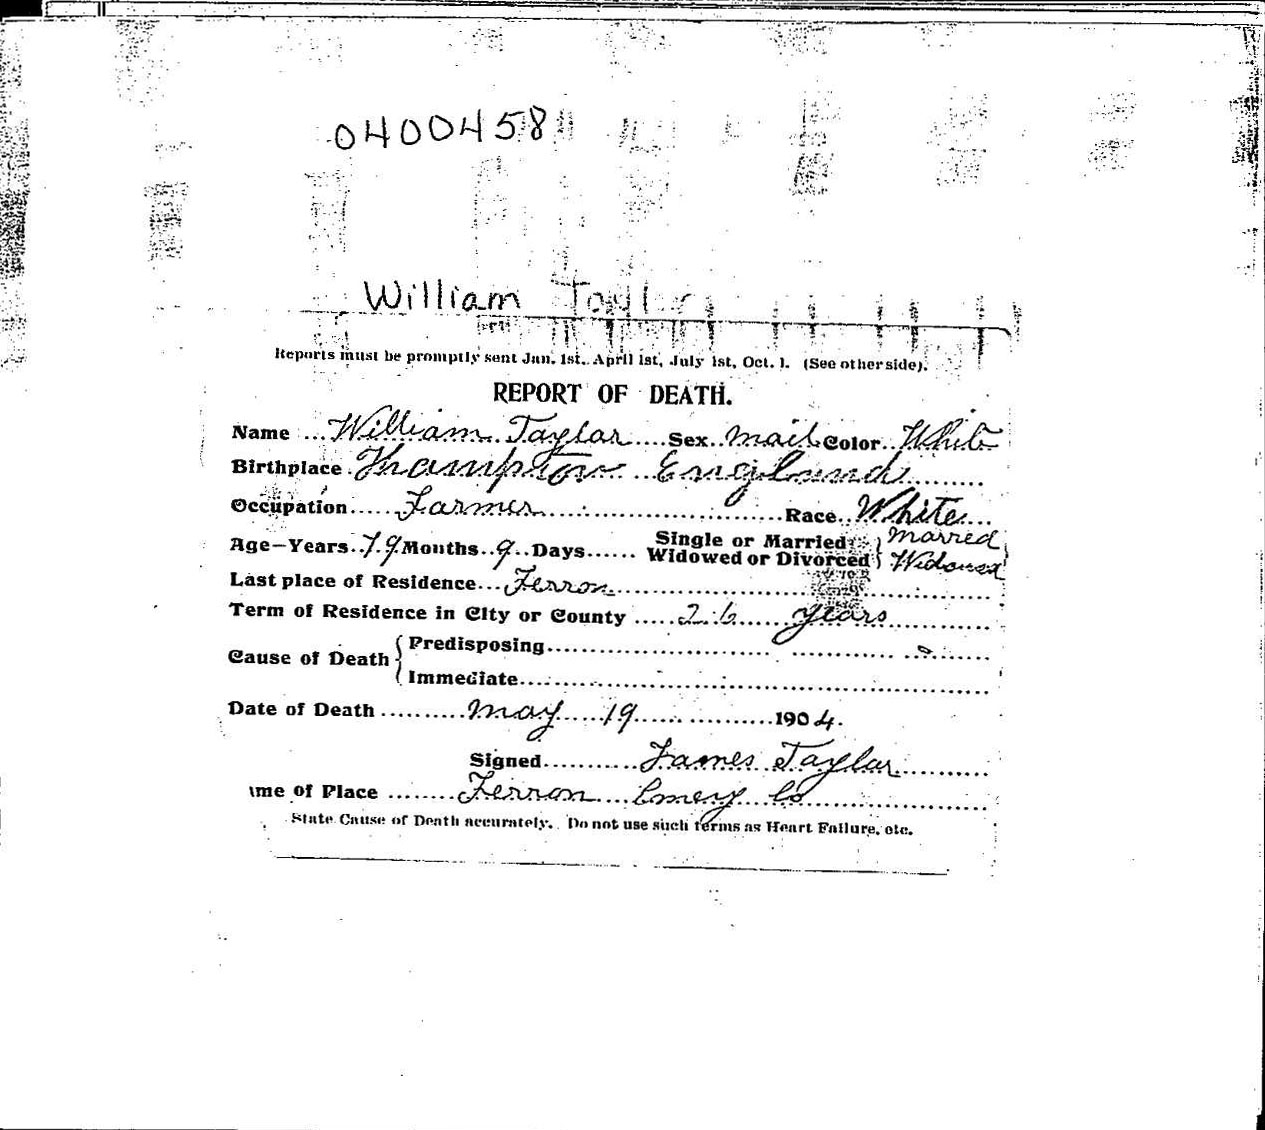 0400458
William Taylor
Reports must be promptly sent Jan. 1st, April 1st, July 1st, Oct. 1. (See other side).
REPORT OF DEATH.
Name ... William Taylor .... Sex .. Mail Color .. White
Birthplace . Thampton ... England ........
Occupation ..... Farmer ............ Race .. White ...
Age—Years .. 79 Months .. 9 .. Days ...... Single or Married Widowed or Divorced { Married Widowed
Last place of Residence ... Ferron ............
Term of Residence in City or County ..... 26 ...... years ............
Cause of Death { Predisposing ............
Immediate ............
Date of Death .......... May ..... 19 ............ 1904.
Signed ........... James Taylar ..........
me of Place ........ Ferron .... Emery Co ............
State Cause of Death accurately. Do not use such terms as Heart Failure, etc.